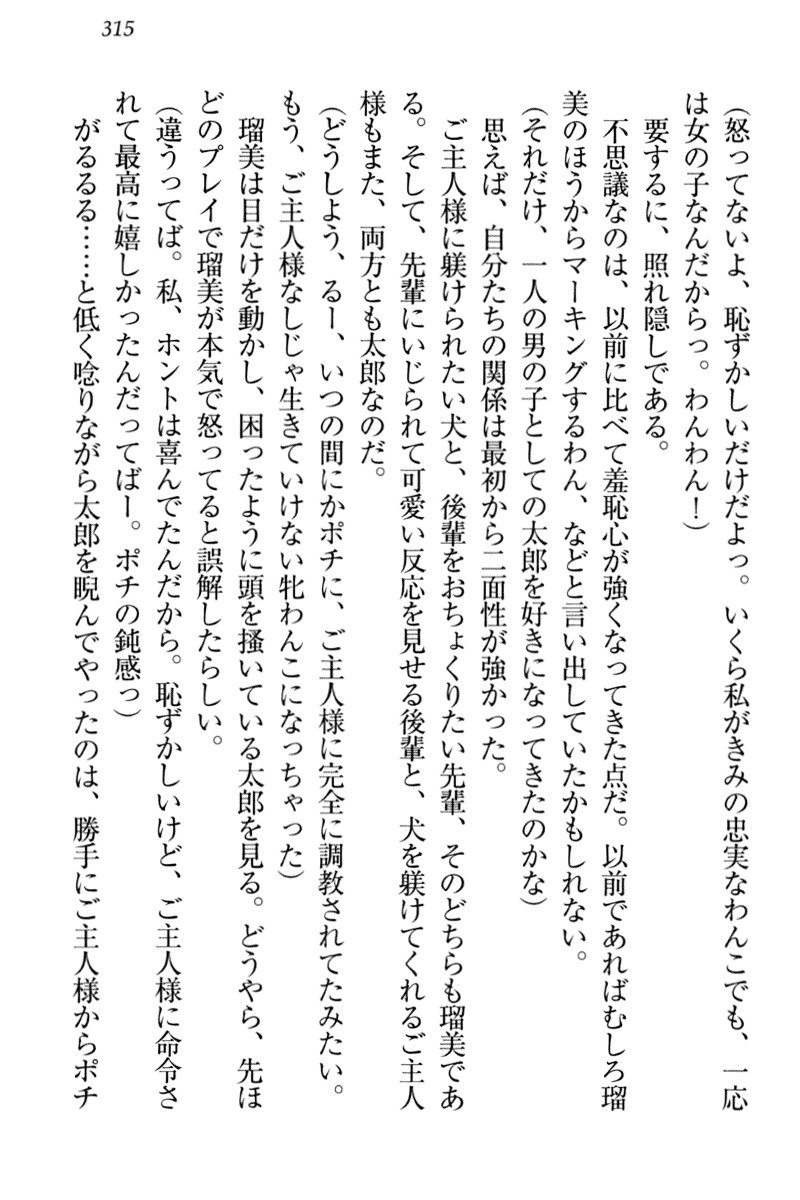 315
(怒ってないよ、恥ずかしいだけだよっ。いくら私がきみの忠実なわんこでも、一応
は女の子なんだからっ。わんわん！)
要するに、照れ隠しである。
不思議なのは、以前に比べて羞恥心が強くなってきた点だ。以前であればむしろ瑠
美のほうからマーキングするわん、などと言い出していたかもしれない。
(それだけ、一人の男の子としての太郎を好きになってきたのかな)
思えば、自分たちの関係は最初から二面性が強かった。
ご主人様に躾けられたい犬と、後輩をおちょくりたい先輩、そのどちらも瑠美であ
る。そして、先輩にいじられて可愛い反応を見せる後輩と、犬を躾けてくれるご主人
様もまた、両方とも太郎なのだ。
(どうしよう、るー、いつの間にかポチに、ご主人様に完全に調教されてたみたい。
もう、ご主人様なしじゃ生きていけない牝わんこになっちゃった)
瑠美は目だけを動かし、困ったように頭を掻いている太郎を見る。どうやら、先ほ
どのプレイで瑠美が本気で怒ってると誤解したらしい。
(違うってば。私、ホントは喜んでたんだから。恥ずかしいけど、ご主人様に命令さ
れて最高に嬉しかったんだってばー。ポチの鈍感っ)
がるるる……と低く唸りながら太郎を睨んでやったのは、勝手にご主人様からポチ